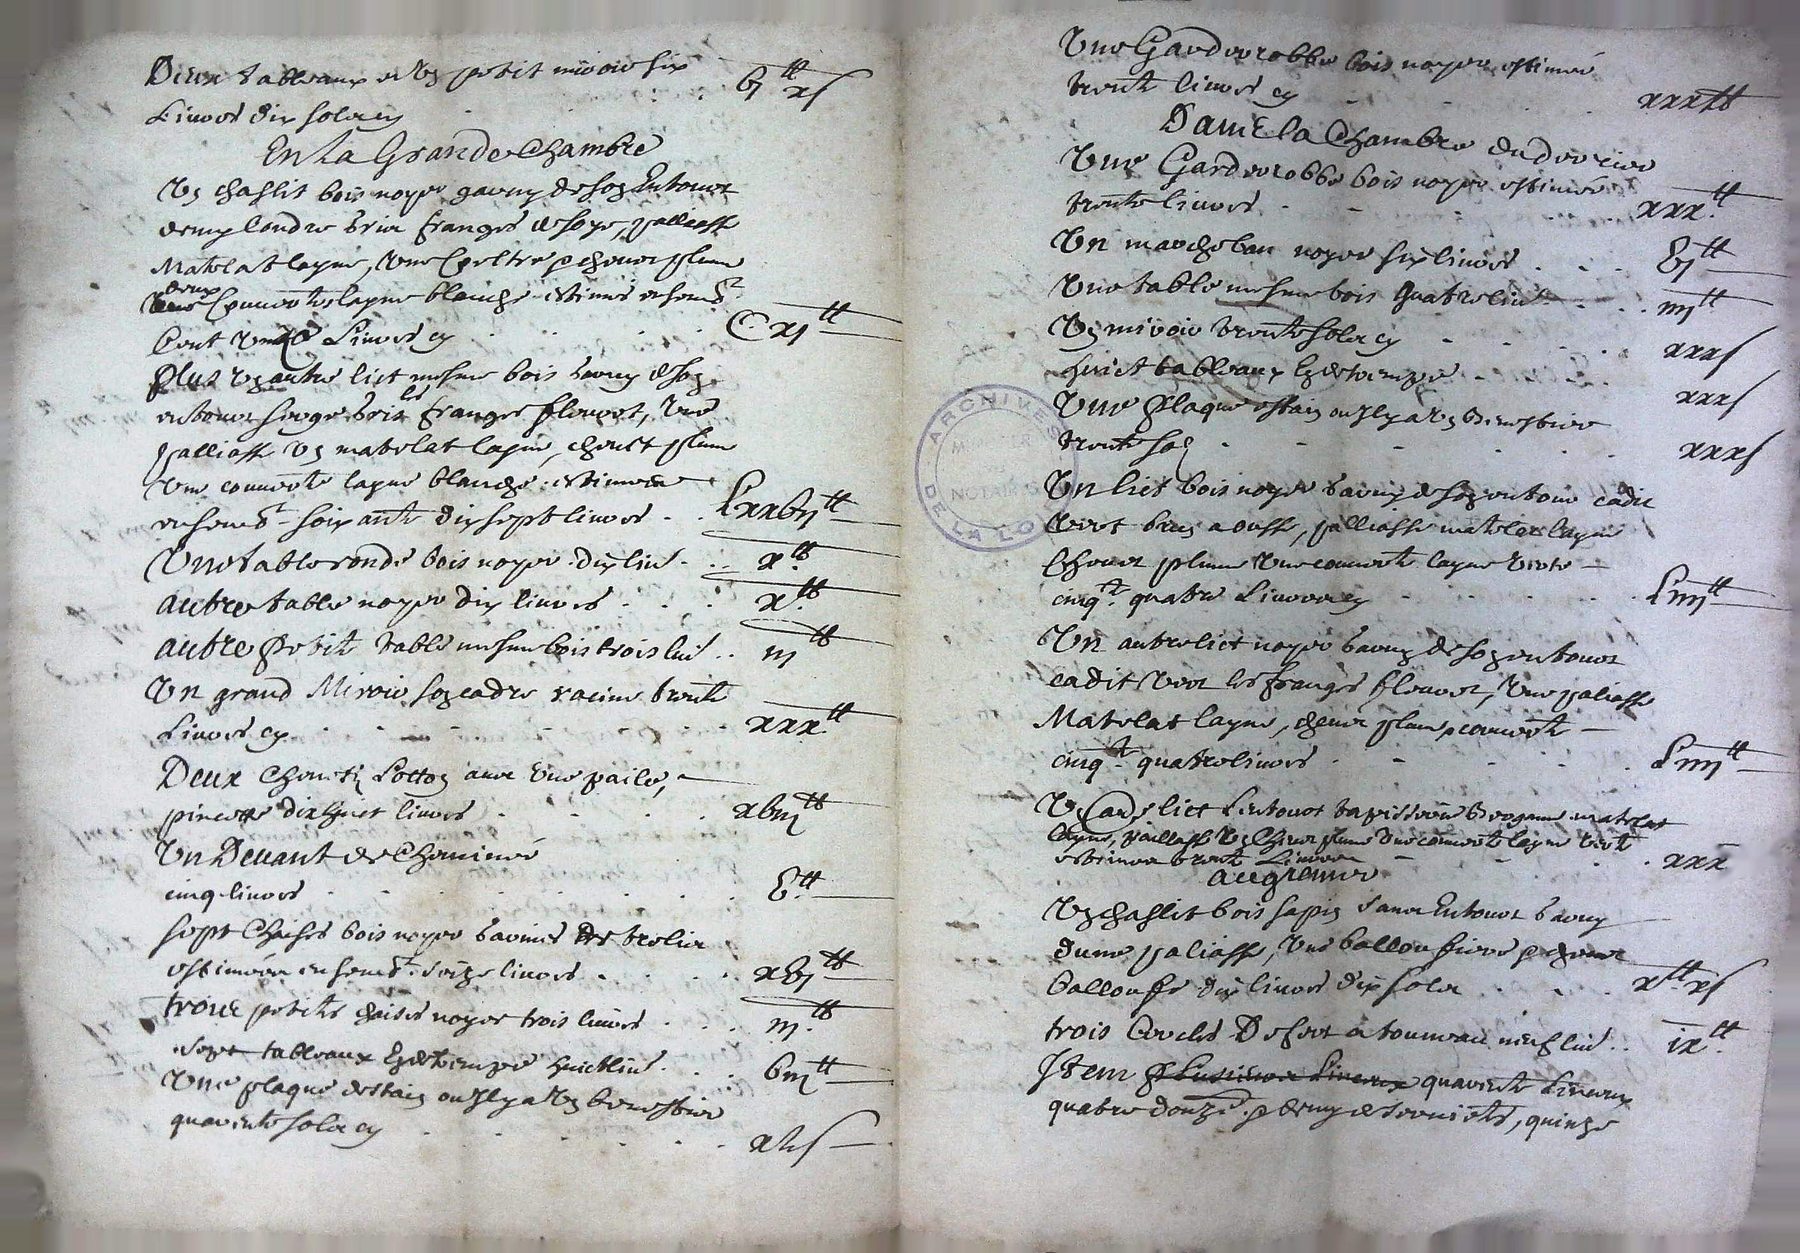 Deux tableaux et un petit miroir six
Livres dix sols cy . . . bj tt xs
En La Grande Chambre
Un chaslit bois noyer garny de son Entour
demy Londre avec franges de soye, palliasse
Matelat layne, Une Coeltre p chevet plume
deux
Couverte layne blanche estimés ensemble
Cent Livres cy . C xj tt
Plus un autre lict mesme bois garny de son
entour les franges fleuret, Une
palliasse Un matelat layne, chevet plume
Une couverte layne blanche estimée
ensemble soixante dix sept livres . . Lxxbij tt
Une table ronde bois noyer dix liv . . . x tt
autre table noyer dix livres . . . x tt
autre petite table mesme bois trois liv . . iij tt
Un grand Miroir son cadre racine trente
Livres cy . . . xxx tt
Deux Chenets Lotton avec Une paile,
pincette dixhuict livres . . . xbiij tt
Un Devant de Cheminée
cinq livres . . . b tt
sept Chaises bois noyer garnies de
estimées ensemble seize livres . . . xbj tt
trois petites chaises noyer trois livres . . . iij tt
sept tableaux En destrempe huict liv . . . biij tt
Une plaque estain ou Il y a Un benestier
quarente sols cy . . . xls
Une Garderobbe bois noyer estimée
trente livres cy . . . xxx tt
Dans la Chambre du derrier
Une Garderobbe bois noyer estimée
trente livres . . . xxx tt
Un marcheban noyer six livres . . . bj tt
Une table mesme bois quatre liv . . . iiij tt
Un miroir trente sols cy . . . xxxs
huict tableaux En destrempe . . . xxxs
Une plaque estain ou Il y a Un Benestier
trente sols . . . xxxs
Un lict bois noyer garny de son entour cadis
vert, palliasse matelat layne
Chevet plume Une couverte layne verte
cinq.te quatre Livres cy . . . Liiij tt
Un autre lict noyer garny de son entour
cadit vert les franges fleuret, Une paliasse
Matelat layne, chevet plume, couverte
cinq.te quatre livres . . . Liiij tt
Un Cade lict Lentour tapisserie Bergame matelat
layne, paillasse Un Chevet plume Une couverte layne verte
estimée trente Livres . . . xxx
au grenier
Un chaslit bois sapin sans Entour garny
dune paliasse, Une balloufiere p chevet
balloufe dix livres dix sols . . . x tt xs
trois Cercles De fer a tonneau neuf liv . . ix tt
Item plusieurs Linceux quarente Linceux
quatre douze p demy de serviettes, quinze
ARCHIVES
NOTAIRES
DE LA LO